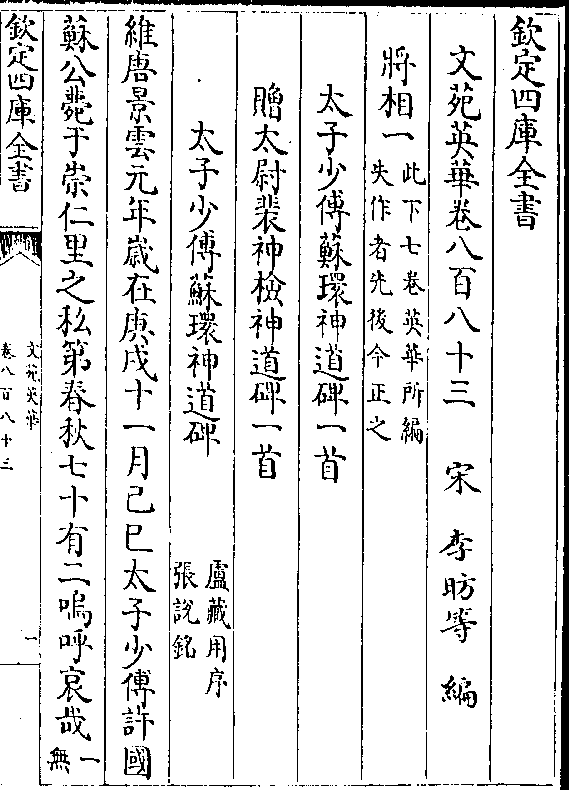 欽定四庫全書
文苑英華卷八百八十三　宋　李昉等　編
將相一此下七卷英華所編
失作者先後今正之
太子少傅蘇環神道碑一首
贈太尉裴神檢神道碑一首
太子少傅蘇環神道碑
盧藏用序
張說銘
維唐景雲元年歲在庚戌十一月己巳太子少傅許國
蘇公薨于崇仁里之私第春秋七十有二嗚呼哀哉一
無
欽定四庫全書
文苑英華
卷八百八十三
一